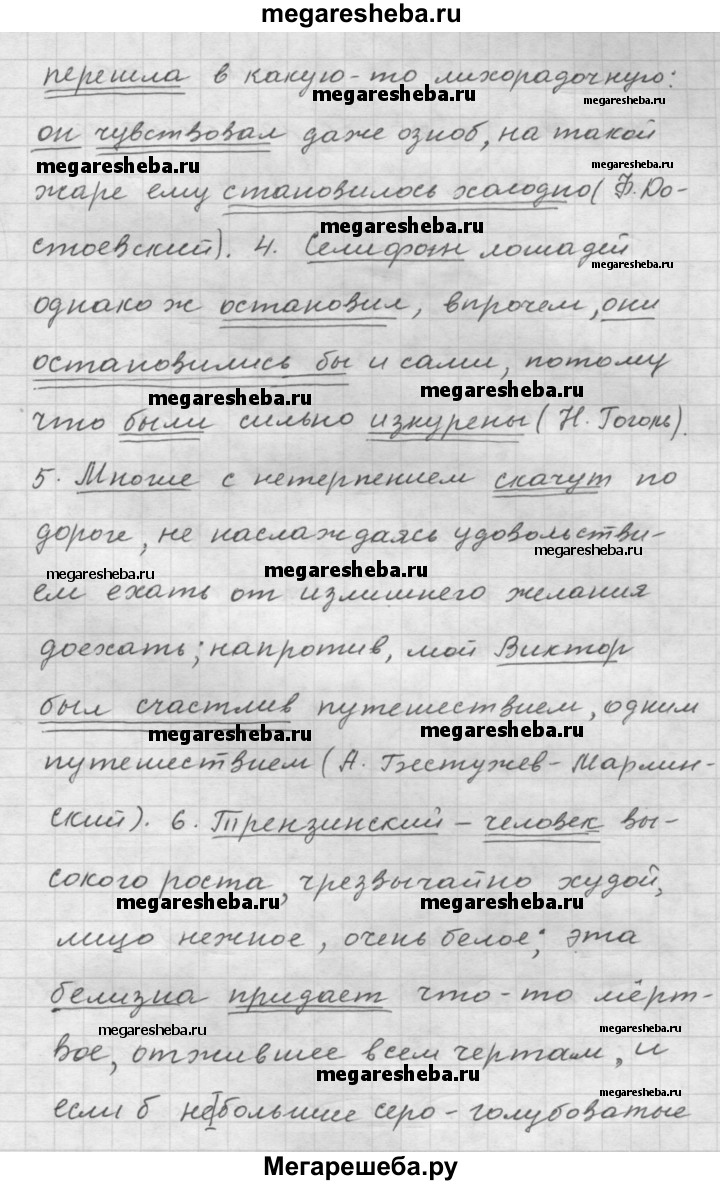 megaresheba.ru
перешла в какую-то лихорадочную:
megaresheba.ru megaresheba.ru
он чувствовал даже озноб, на такой
megaresheba.ru megaresheba.ru
жаре ему становилось холодно (Ф. До-
megaresheba.ru
стоевский). 4. Селифан лошадей
megaresheba.ru
однако ж остановил, впрочем, они
остановились бы и сами, потому
megaresheba.ru megaresheba.ru
что были сильно изнурены (Н. Гоголь).
5. Многие с нетерпением скачут по
дороге, не наслаждаясь удовольстви-
megaresheba.ru megaresheba.ru megaresheba.ru
ем ехать от излишнего желания
доехать; напротив, мой Виктор
был счастлив путешествием, одним
megaresheba.ru megaresheba.ru
путешествием (А. Бестужев-Марлин-
ский). 6. Трензинский – человек вы-
сокого роста, чрезвычайно худой,
megaresheba.ru megaresheba.ru
лицо нежное, очень белое; эта
белизна придает что-то мёрт-
megaresheba.ru megaresheba.ru
вое, отжившее всем чертам, и
megaresheba.ru megaresheba.ru
если б небольшие серо-голубоватые
Мегарешеба.ру